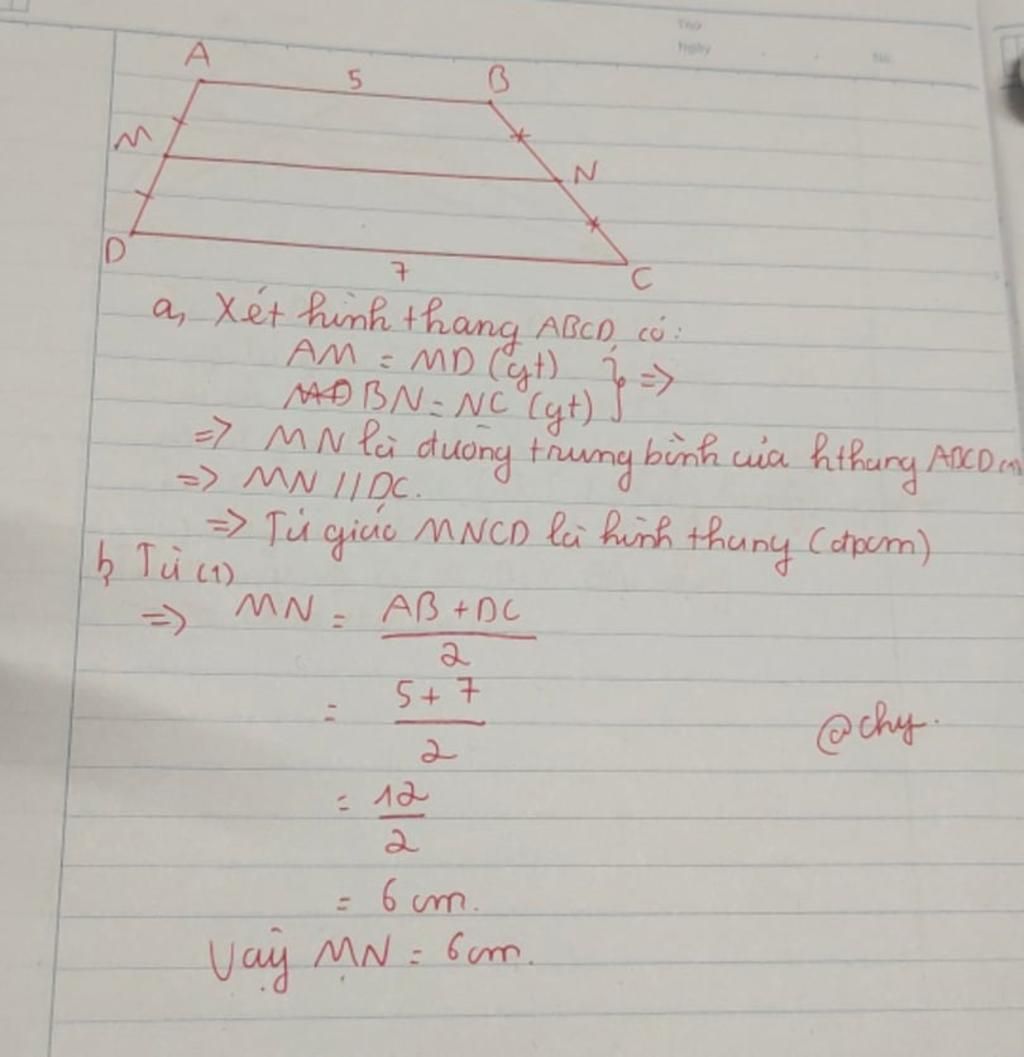 Thứ
Ngày
No.
A
5
B
M
N
D
7
C
a, Xét hình thang ABCD có:
AM = MD (gt)
BN = NC (gt) } =>
=> MN là đường trung bình của hthang ABCD (1)
=> MN // DC.
=> Tứ giác MNCD là hình thang (đpcm)
b, Từ (1)
=> MN = AB + DC / 2
= 5 + 7 / 2
@chy.
= 12 / 2
= 6 cm.
Vậy MN = 6cm.